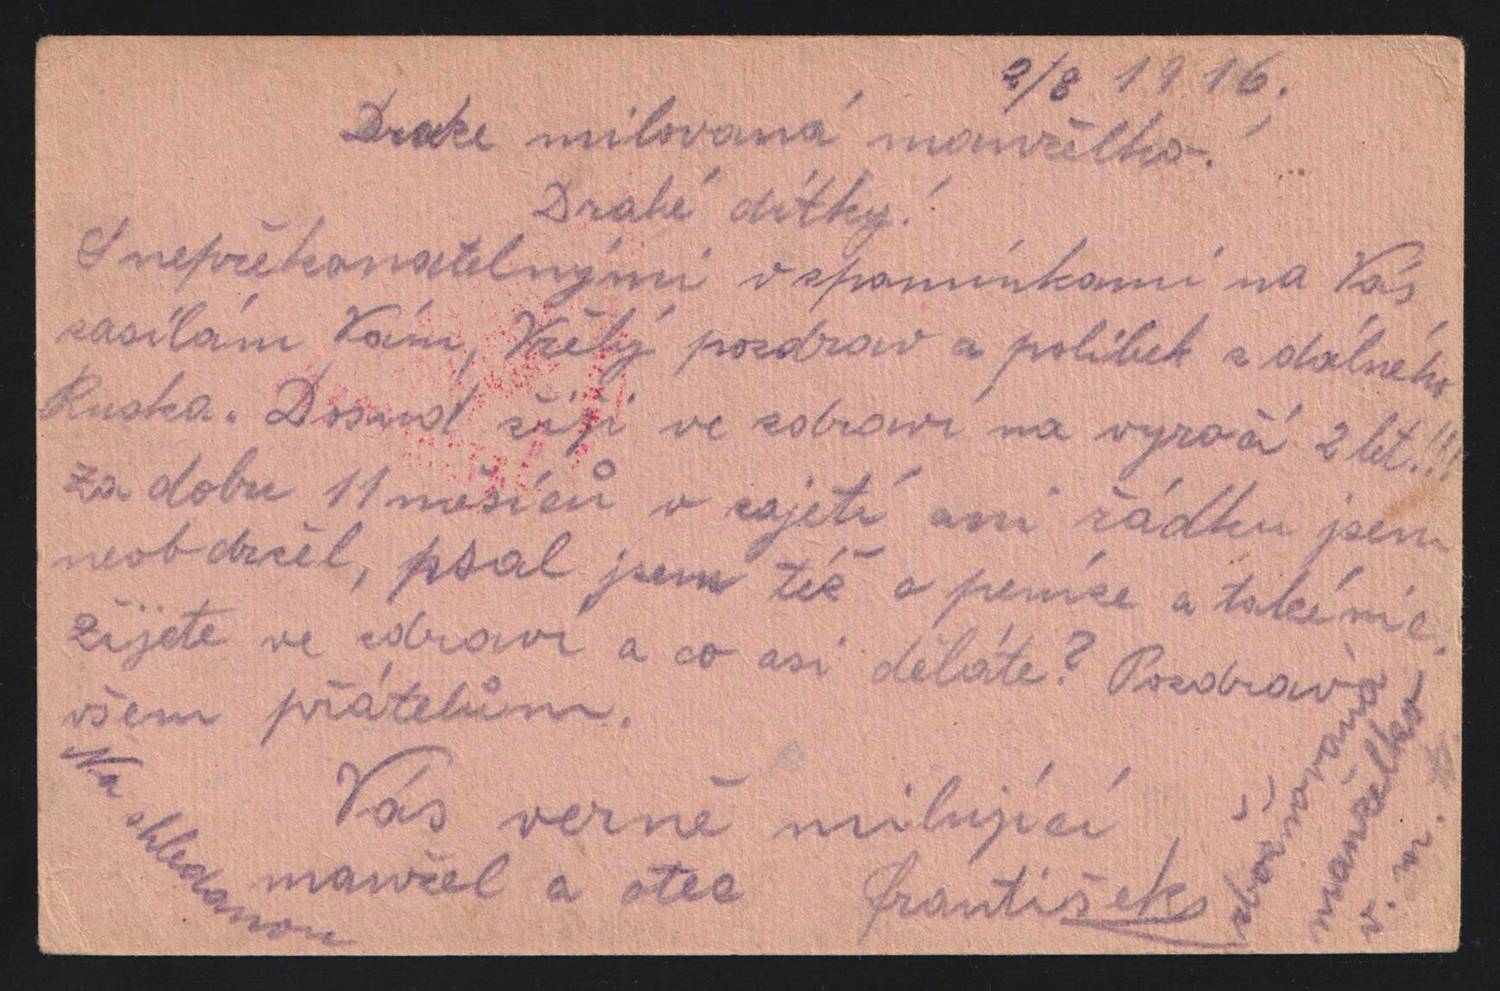 2/8 1916.
Drahe milovaná manželko!
Drahé dítky!
S nepřekonatelnými vzpomínkami na Vás
zasílám Vám, Vřelý pozdrav a polibek z dálného
Ruska. Dosud žiji ve zdraví na výročí 2 let.!!!
za dobu 11 měsíců v zajetí ani řádku jsem
neobdržel, psal jsem též o peníze a také nic.
žijete ve zdraví a co asi děláte? Pozdrav
všem přátelům.
Vás verně milující
manžel a otec František
Na shledanou
zbožňovaná
manželko
v. m.